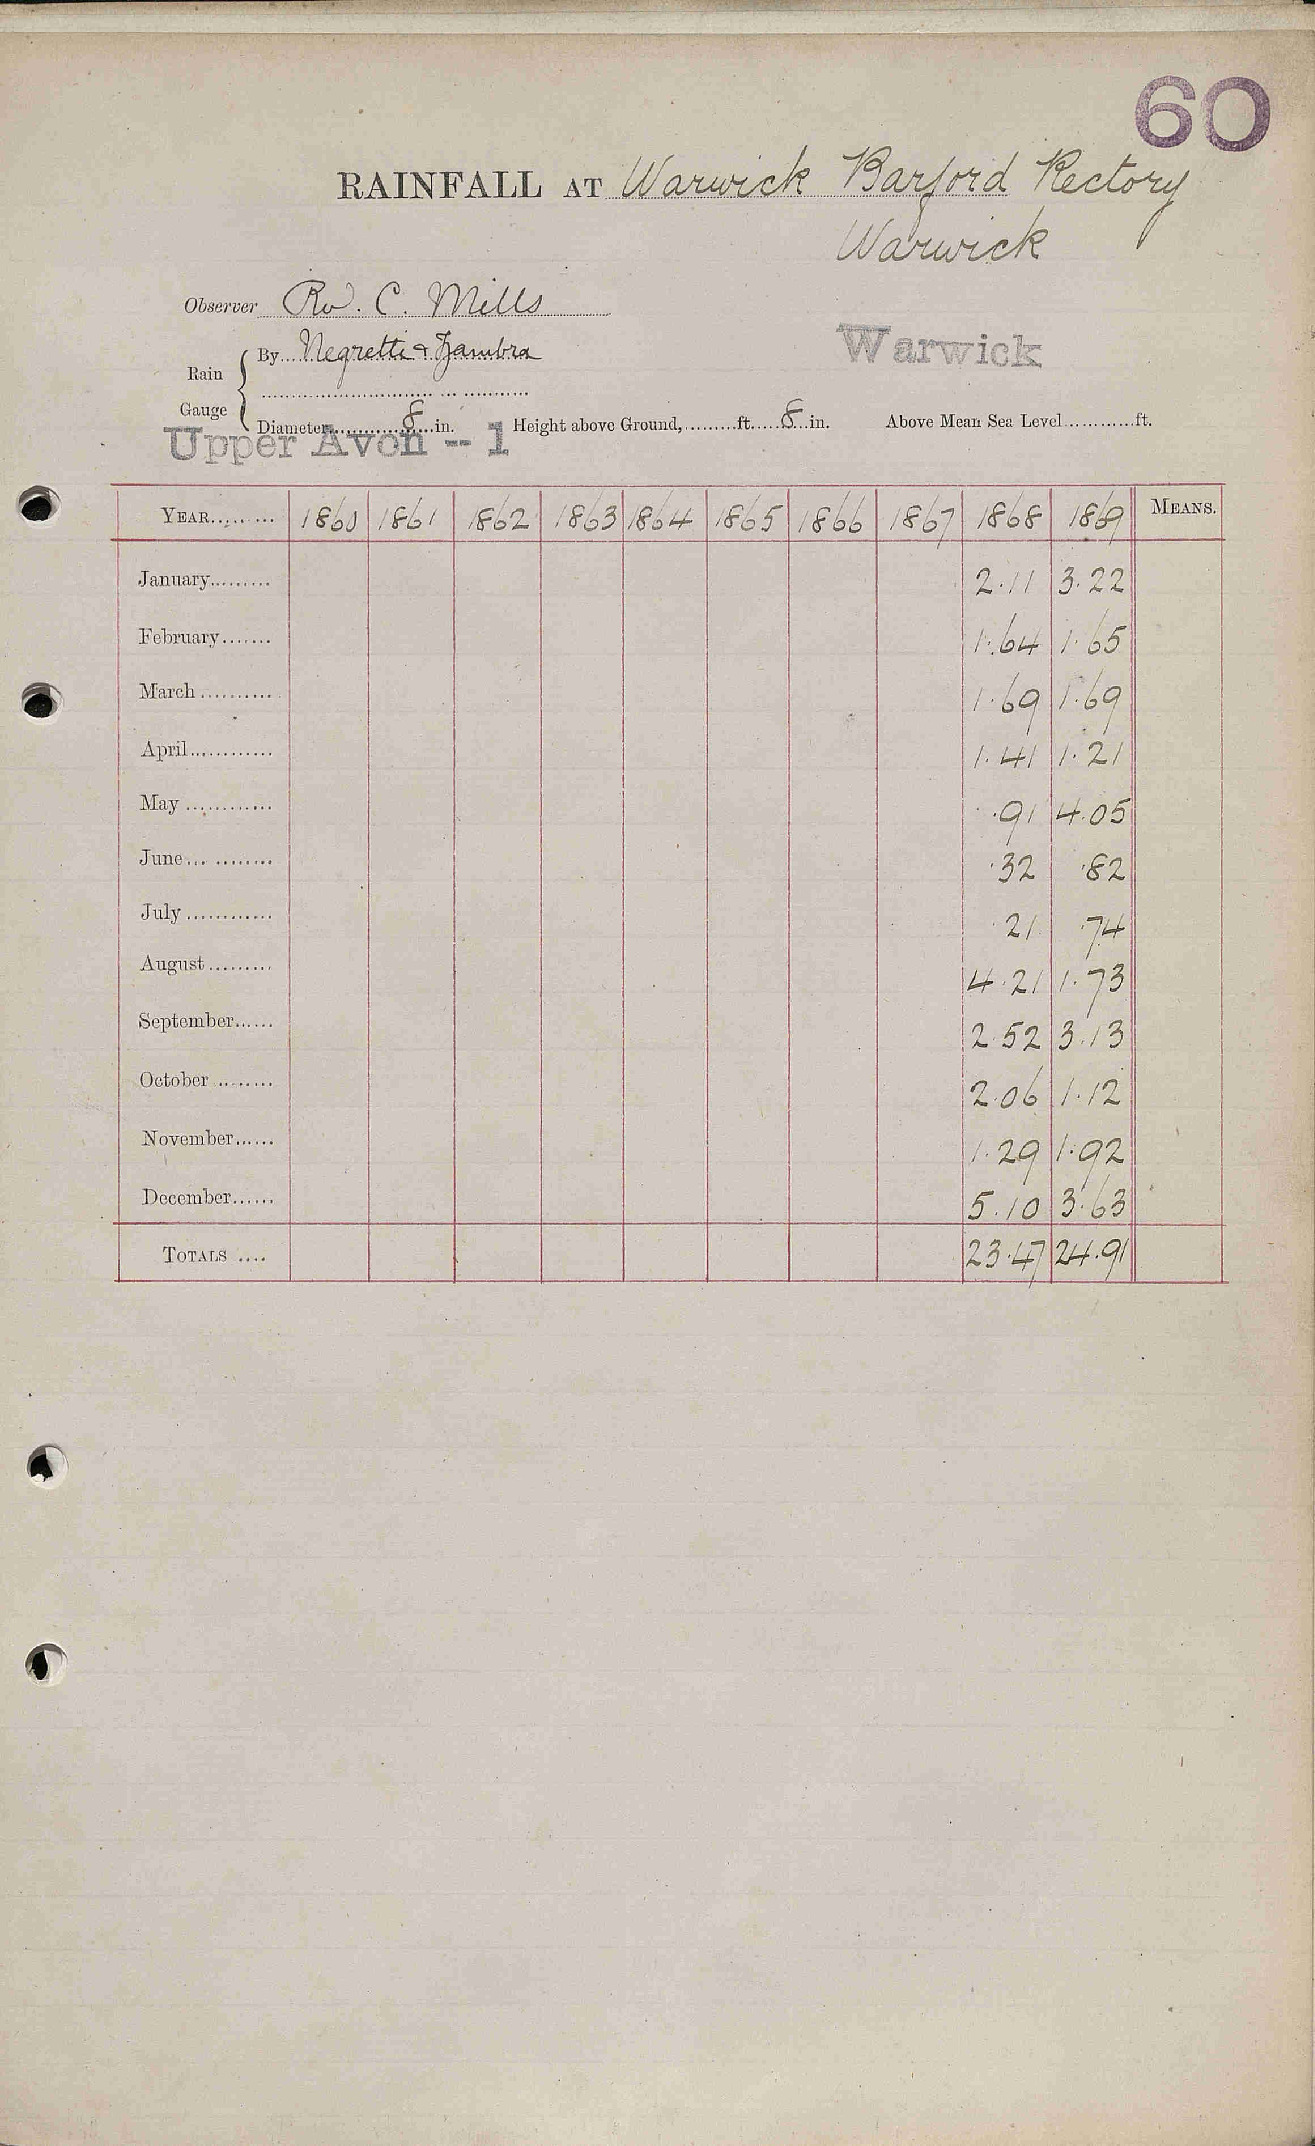 60
RAINFALL AT Warwick Barford Rectory
Warwick
Observer Rev. C. Mills
Warwick
Rain Gauge { By Negretti & Zambra
Diameter 8 in. Height above Ground, ft. 8 in. Above Mean Sea Level ft.
Upper Avon -- 1
YEAR 1860 1861 1862 1863 1864 1865 1866 1867 1868 1869 MEANS.
January 2.11 3.22
February 1.64 1.65
March 1.69 1.69
April 1.41 1.21
May .91 4.05
June .32 .82
July .21 .74
August 4.21 1.73
September 2.52 3.13
October 2.06 1.12
November 1.29 1.92
December 5.10 3.63
TOTALS 23.47 24.91